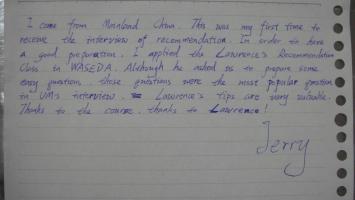 I come from Mainland China. This was my first time to
receive the interview of recommendation. In order to have
a good preparation. I applied the Lawrence's Recommendation
Class in WASEDA. Although he asked us to prepare some
easy question, these questions were the most popular question
in UM's interview. Lawrence's tips are very valuable.
Thanks to the course, thanks to Lawrence!
Jerry